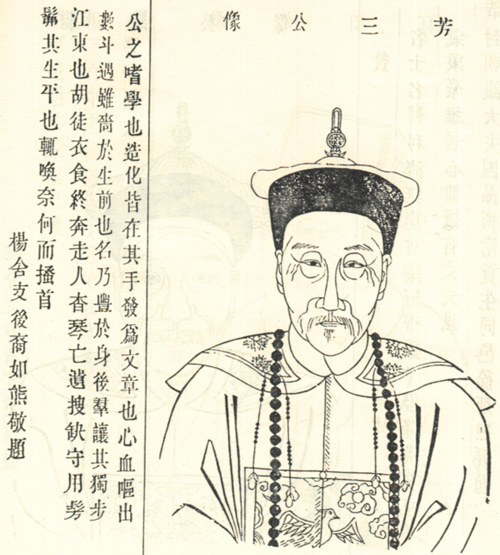 芳三公像
公之嗜學也造化皆在其手發爲文章也心血嘔出
數斗遇雖嗇於生前也名乃豐於身後羣讓其獨步
江東也胡徒衣食終奔走人杳琴亡遺搜缺守用髣
髴其生平也輒喚奈何而搔首
楊合支後裔如熊敬題